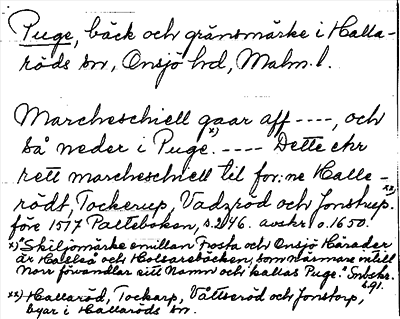 Puge, bäck och gränsmärke i Halla-
röds sn, Onsjö hd, Malm. l.
Marcheschiell gaar aff ----, och
så neder i Puge.x) ---- Dette ehr
rett marcheschiell til for:ne Halle-
rödt, Tockerup, Vadzröd och Jonstrup.xx)
före 1517 Palteboken, s. 246. avskr. o. 1650.
x) "Skiljomärke emillan Frosta och Onsjö Härader
är Hallså och Holsaresbäcken, som närmare intill
Norr förvandlar sitt Namn och kallas Puge." Snbskr.
s. 91.
xx) Hallaröd, Tockarp, Våttseröd och Jonstorp,
byar i Hallaröds sn.